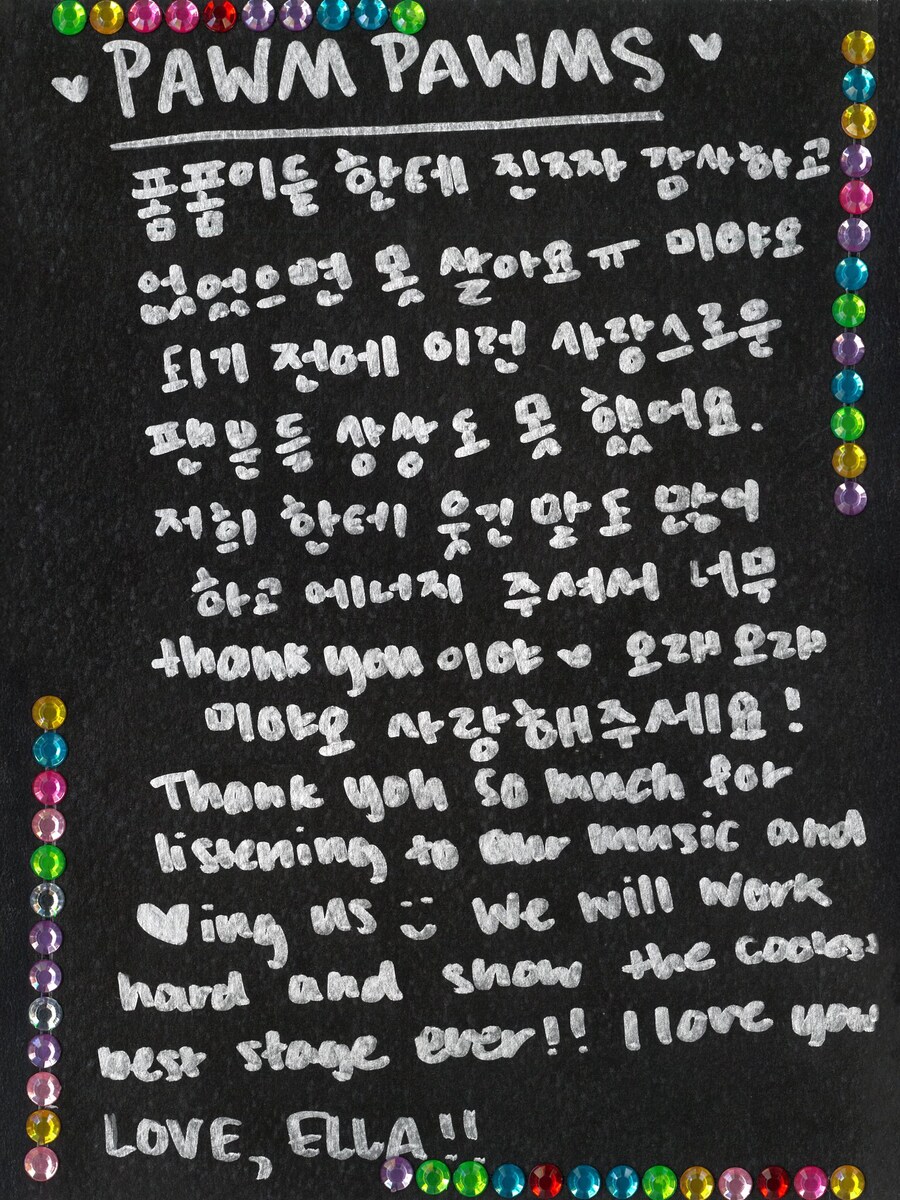 ♥ PAWM PAWMS ♥
폼폼이들 한테 진ㅈ자 감사하고
없없으면 못 살아요ㅠ 미야오
되기 전에 이런 사랑스로운
팬분들 상상도 못 했어요.
저희 한테 웃긴 말도 많이
하고 에너지 주셔서 너무
thank you 이야 ♥ 오래오래
미야오 사랑해주세요!
Thank you so much for
listening to our music and
♥ing us :) We will work
hard and show the coolest
best stage ever!! I love you
LOVE, ELLA!!